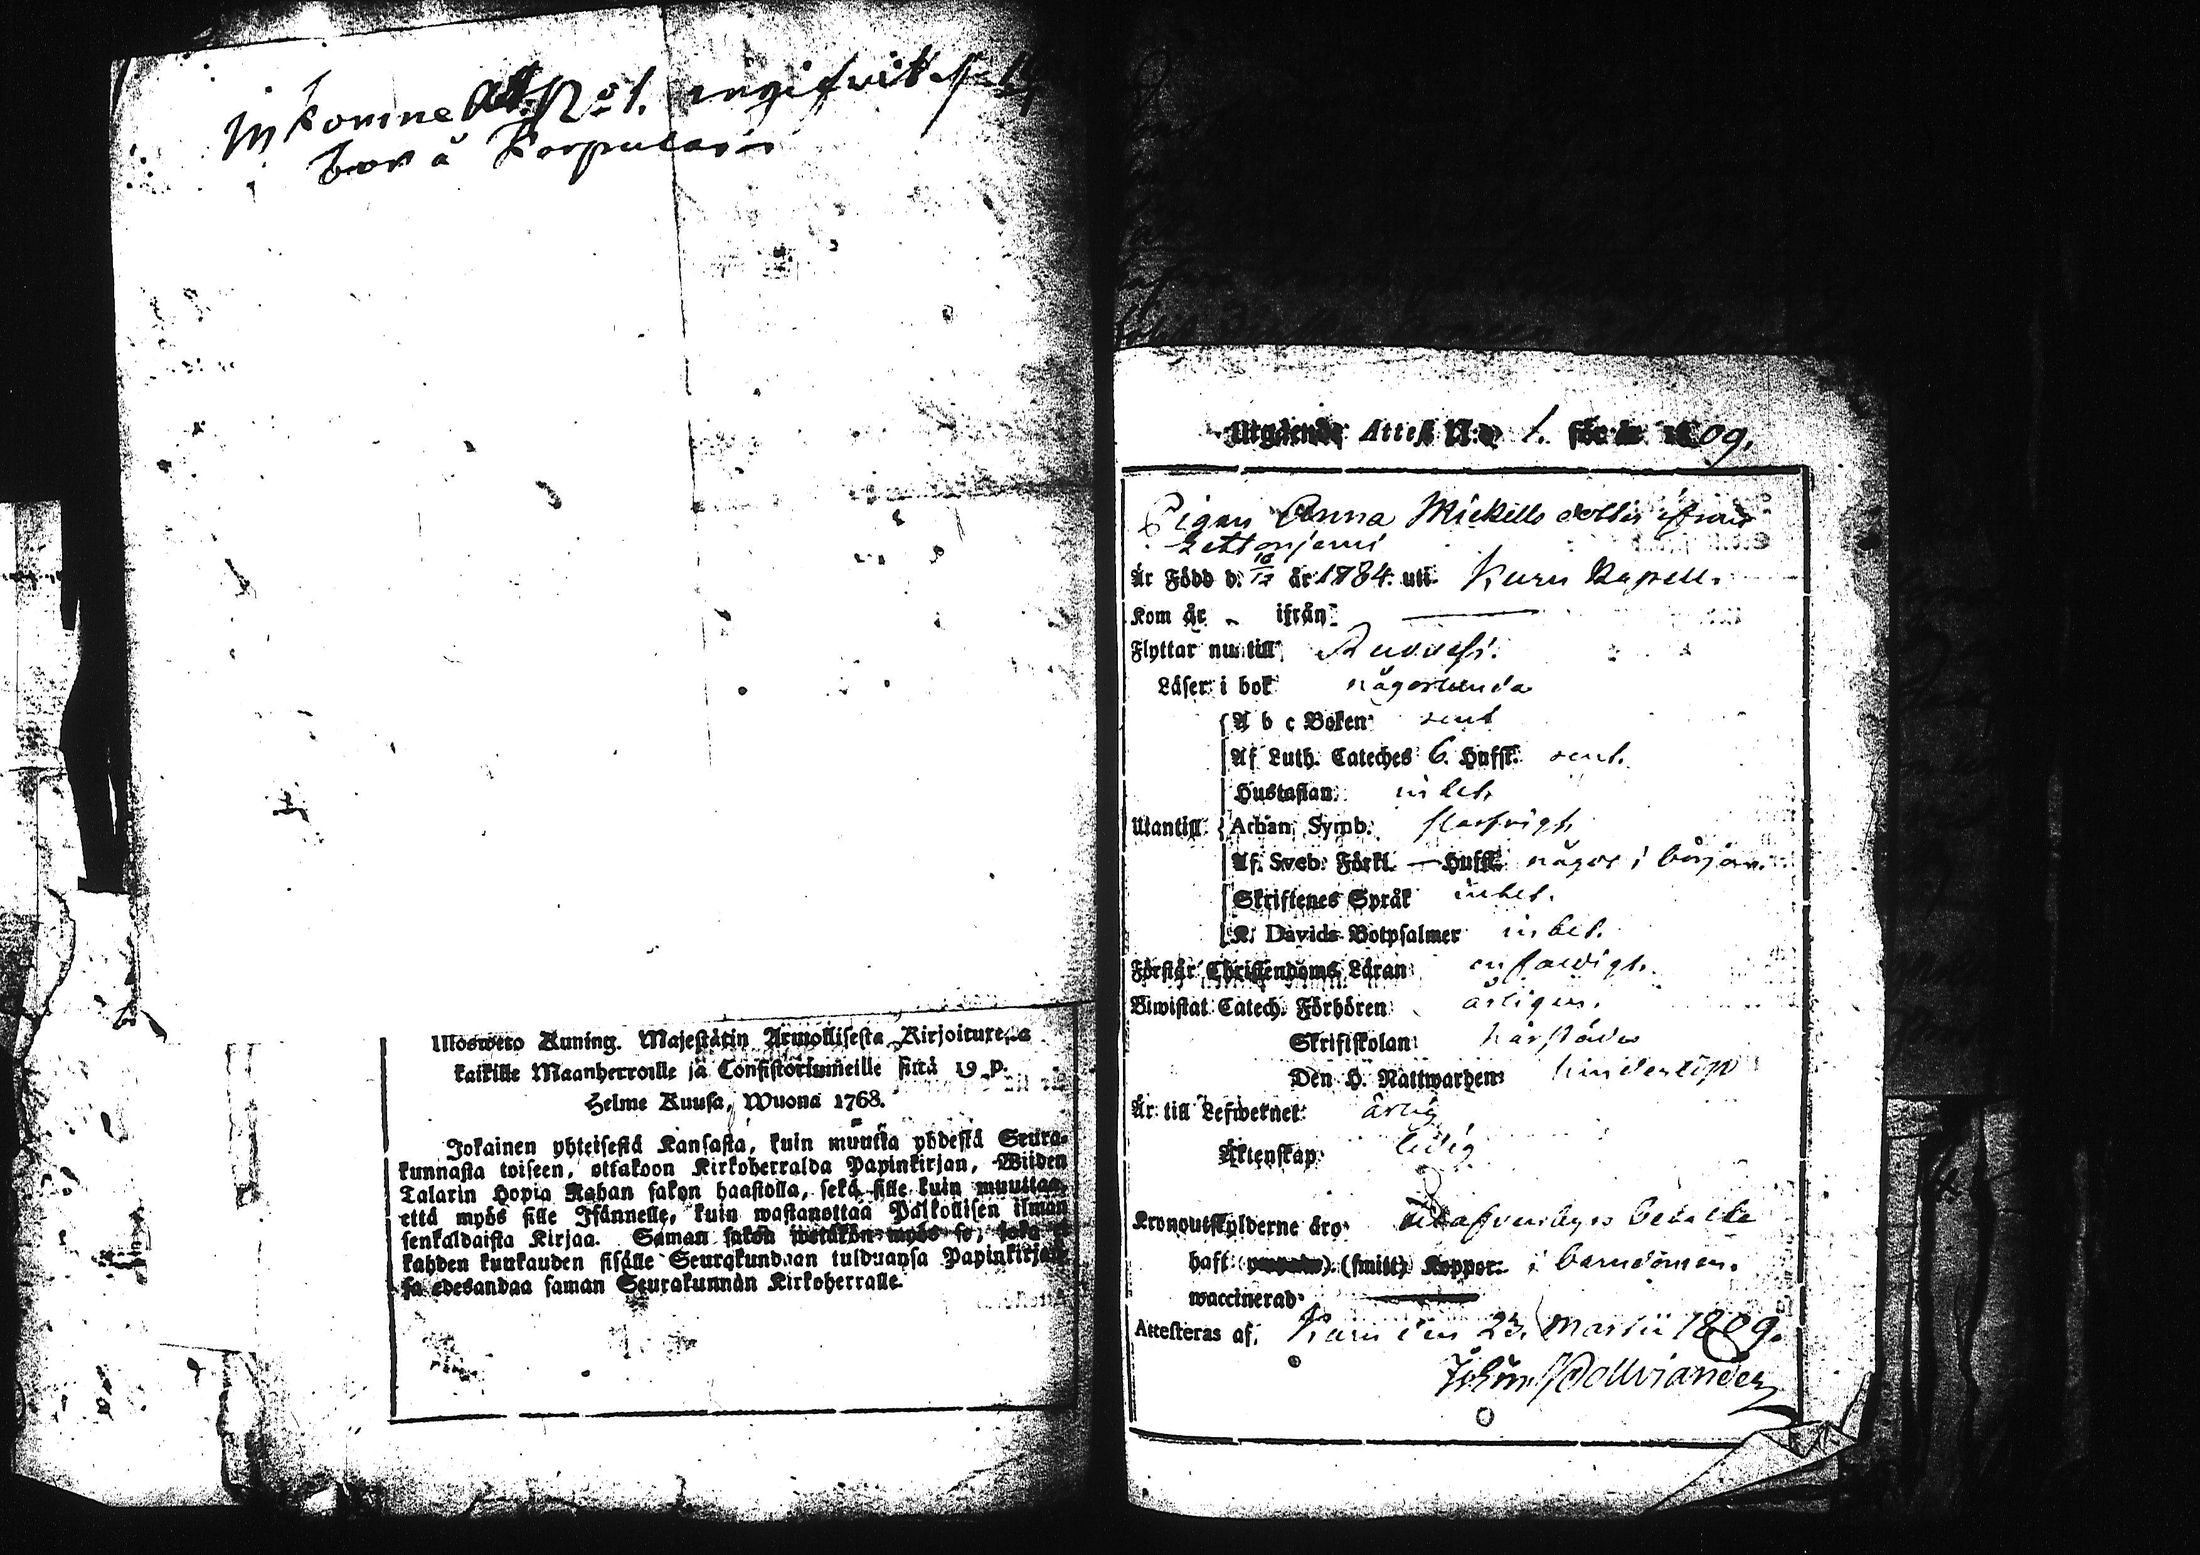 Inkomne Att. No 1. ingifvit
bor å Korpula
Ulosweto Kuning. Majestätin Armollisesta Kirjoituxesta
kaikille Maanherroille ja Consistoriumeille siitä 19 p.
Helme Kuusa, Wuona 1768.
Jokainen yhteisestä Kansasta, kuin muutta yhdestä Seura-
kunnasta toiseen, ottakoon Kirkoherralda Papinkirjan, Wiiden
Talarin Hopia Rahan sakon haastolla, sekä sille kuin muuttaa,
että myös sille Isännelle, kuin wastanottaa Palkollisen ilman
senkaldaista Kirjaa. Saman sakon wetäkön myös se, joka ei
kahden kuukauden sisälle Seurakundaan tulduansa Papinkirjaa-
sa edesandaa saman Seurakunnan Kirkoherralle.
Utgående Attest N:o 1. för år 1809.
Pigan Anna Mickells dotter ifrån
Är Född d. 18/12 år 1784. uti Kuru Kapell.
Kom år - ifrån —
Flyttar nu till Ruovesi.
Läser i bok någorlunda
A b c Boken rent
Af Luth. Cateches 6. Hufst. rent.
Hustaflan intet.
Utantill Athan. Symb. slarfvigt
Af Sveb. Förkl. — Hufst. något i början.
Skriftenes Språk intet.
K. Davids Botpsalmer intet.
Förstår Christendoms Läran enfaldigt.
Biwistat Catech. Förhören årligen.
Skriftskolan härstädes
Den H. Nattwarden hinderlöst
Är till Lefwernet ärlig
Äktenskap ledig
Kronoutskylderne äro betalte
haft (smitt) Koppor i barndomen.
waccinerad —
Attesteras af, Kuru den 23. Martii 1809.
Johan Pollviander